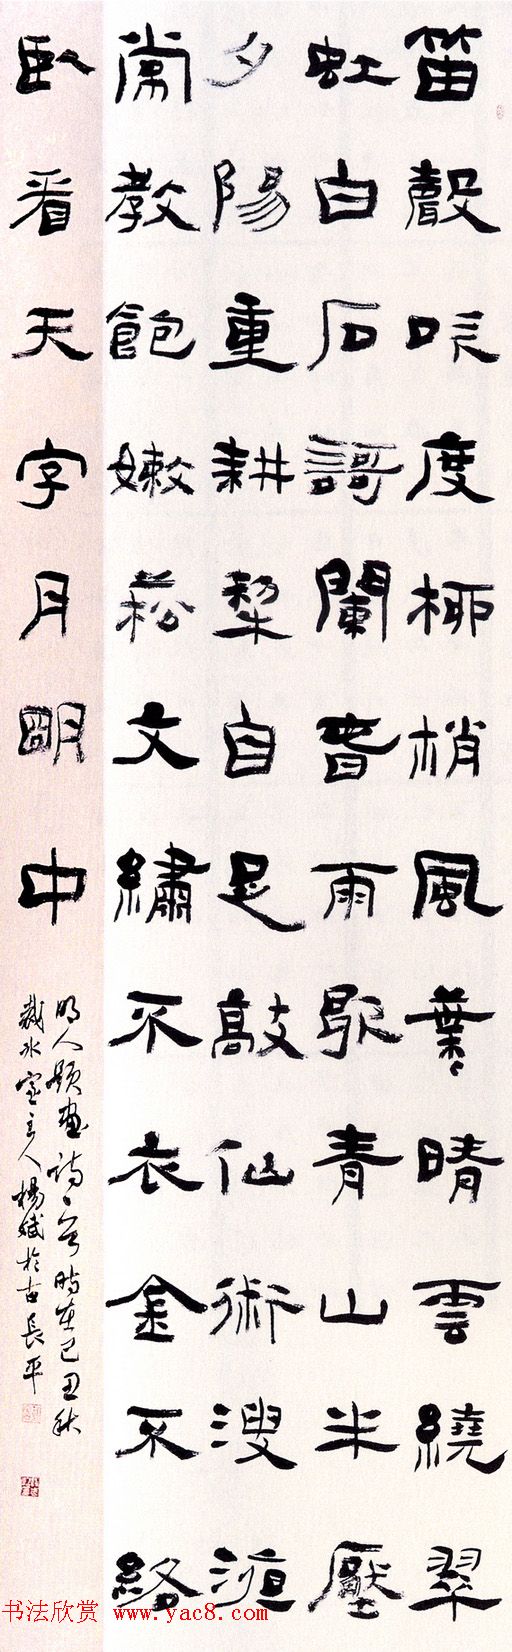 笛聲吹度柳梢風葉〻晴雲繞翠
虹白石謌闌旾雨歇青山半壓
夕陽重耕犁自是敲仙術溲
常教飽嫩菘文繡不衣金不絡
臥看天字月明中
明人題畫詩一首時在己丑秋
水室主人楊斌於古長平
书法欣赏 www.yac8.com